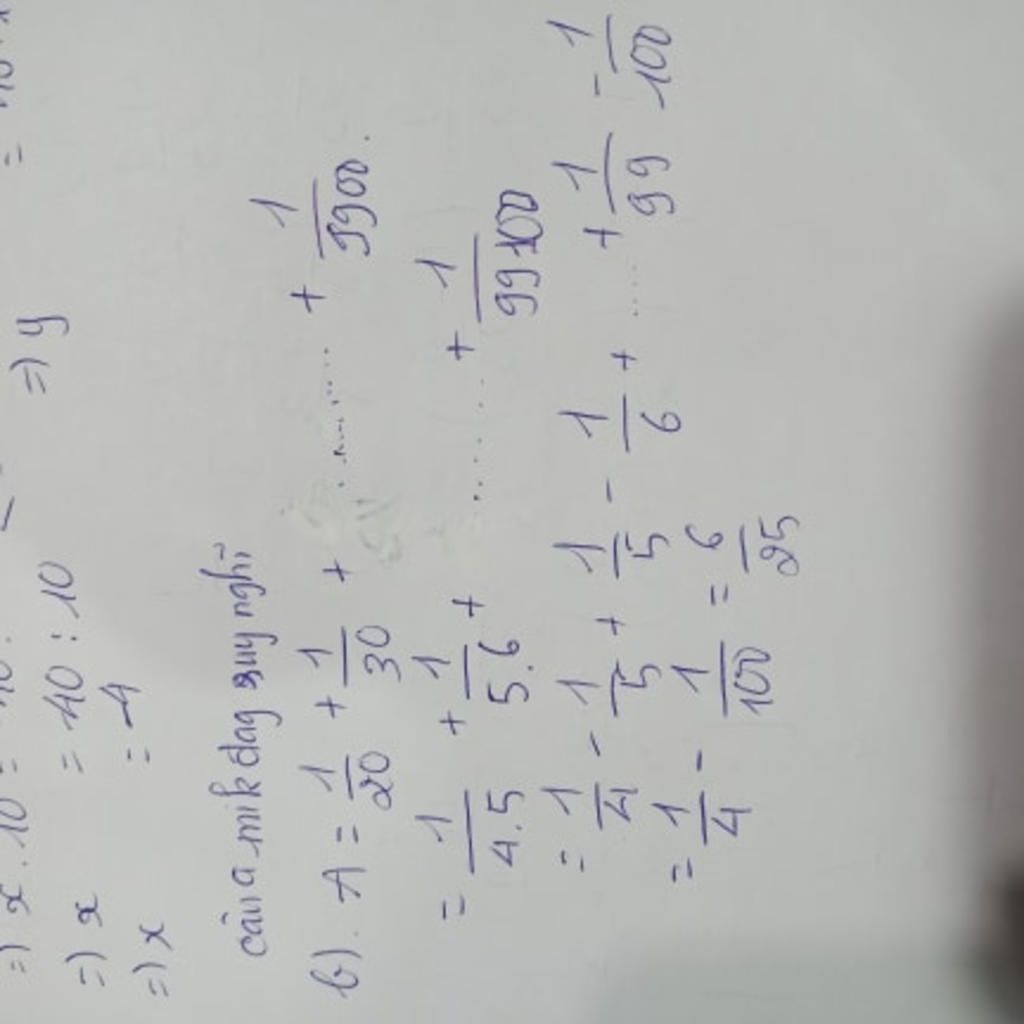 =) x . 10 =
=) x = 40 : 10
=) x = 4
=) y
câu a mik đag suy nghĩ
b). A = 1/20 + 1/30 + ........ + 1/9900.
= 1/4.5 + 1/5.6 + ..... + 1/99.100
= 1/4 - 1/5 + 1/5 - 1/6 + ..... + 1/99 - 1/100
= 1/4 - 1/100 = 6/25